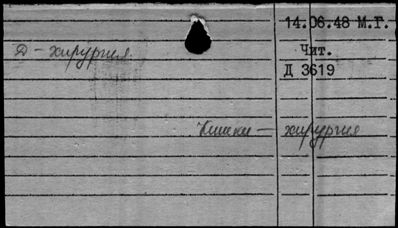 14.06.48 М.Г.
Д - хирургия.
Чит.
Д 3619
Кишки - хирургия